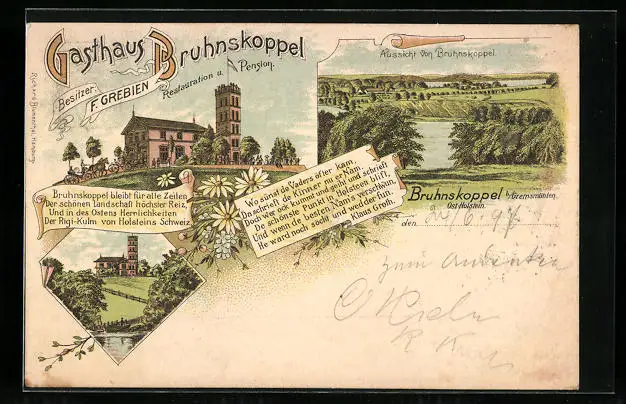 Gasthaus Bruhnskoppel
Besitzer: F. GREBIEN
Restauration u. Pension.
Aussicht von Bruhnskoppel.
Richard Blumenthal, Hamburg
Bruhnskoppel bleibt für alle Zeiten
Der schönen Landschaft höchster Reiz,
Und in des Ostens Herrlichkeiten
Der Rigi-Kulm von Holsteins Schweiz
Wo sünst de Vaders öfter kam,
Da schrief de Kinner nu er Nam
Doch wer ok kummt und geiht und schrieft
De schönste Punkt in Holsteen blift,
Und wenn de besten Nams verschwunn
He ward noch söcht und wedder funn
Klaus Groth.
Bruhnskoppel b/Gremsmühlen.
Ost-Holstein.
den 6. 97
zum